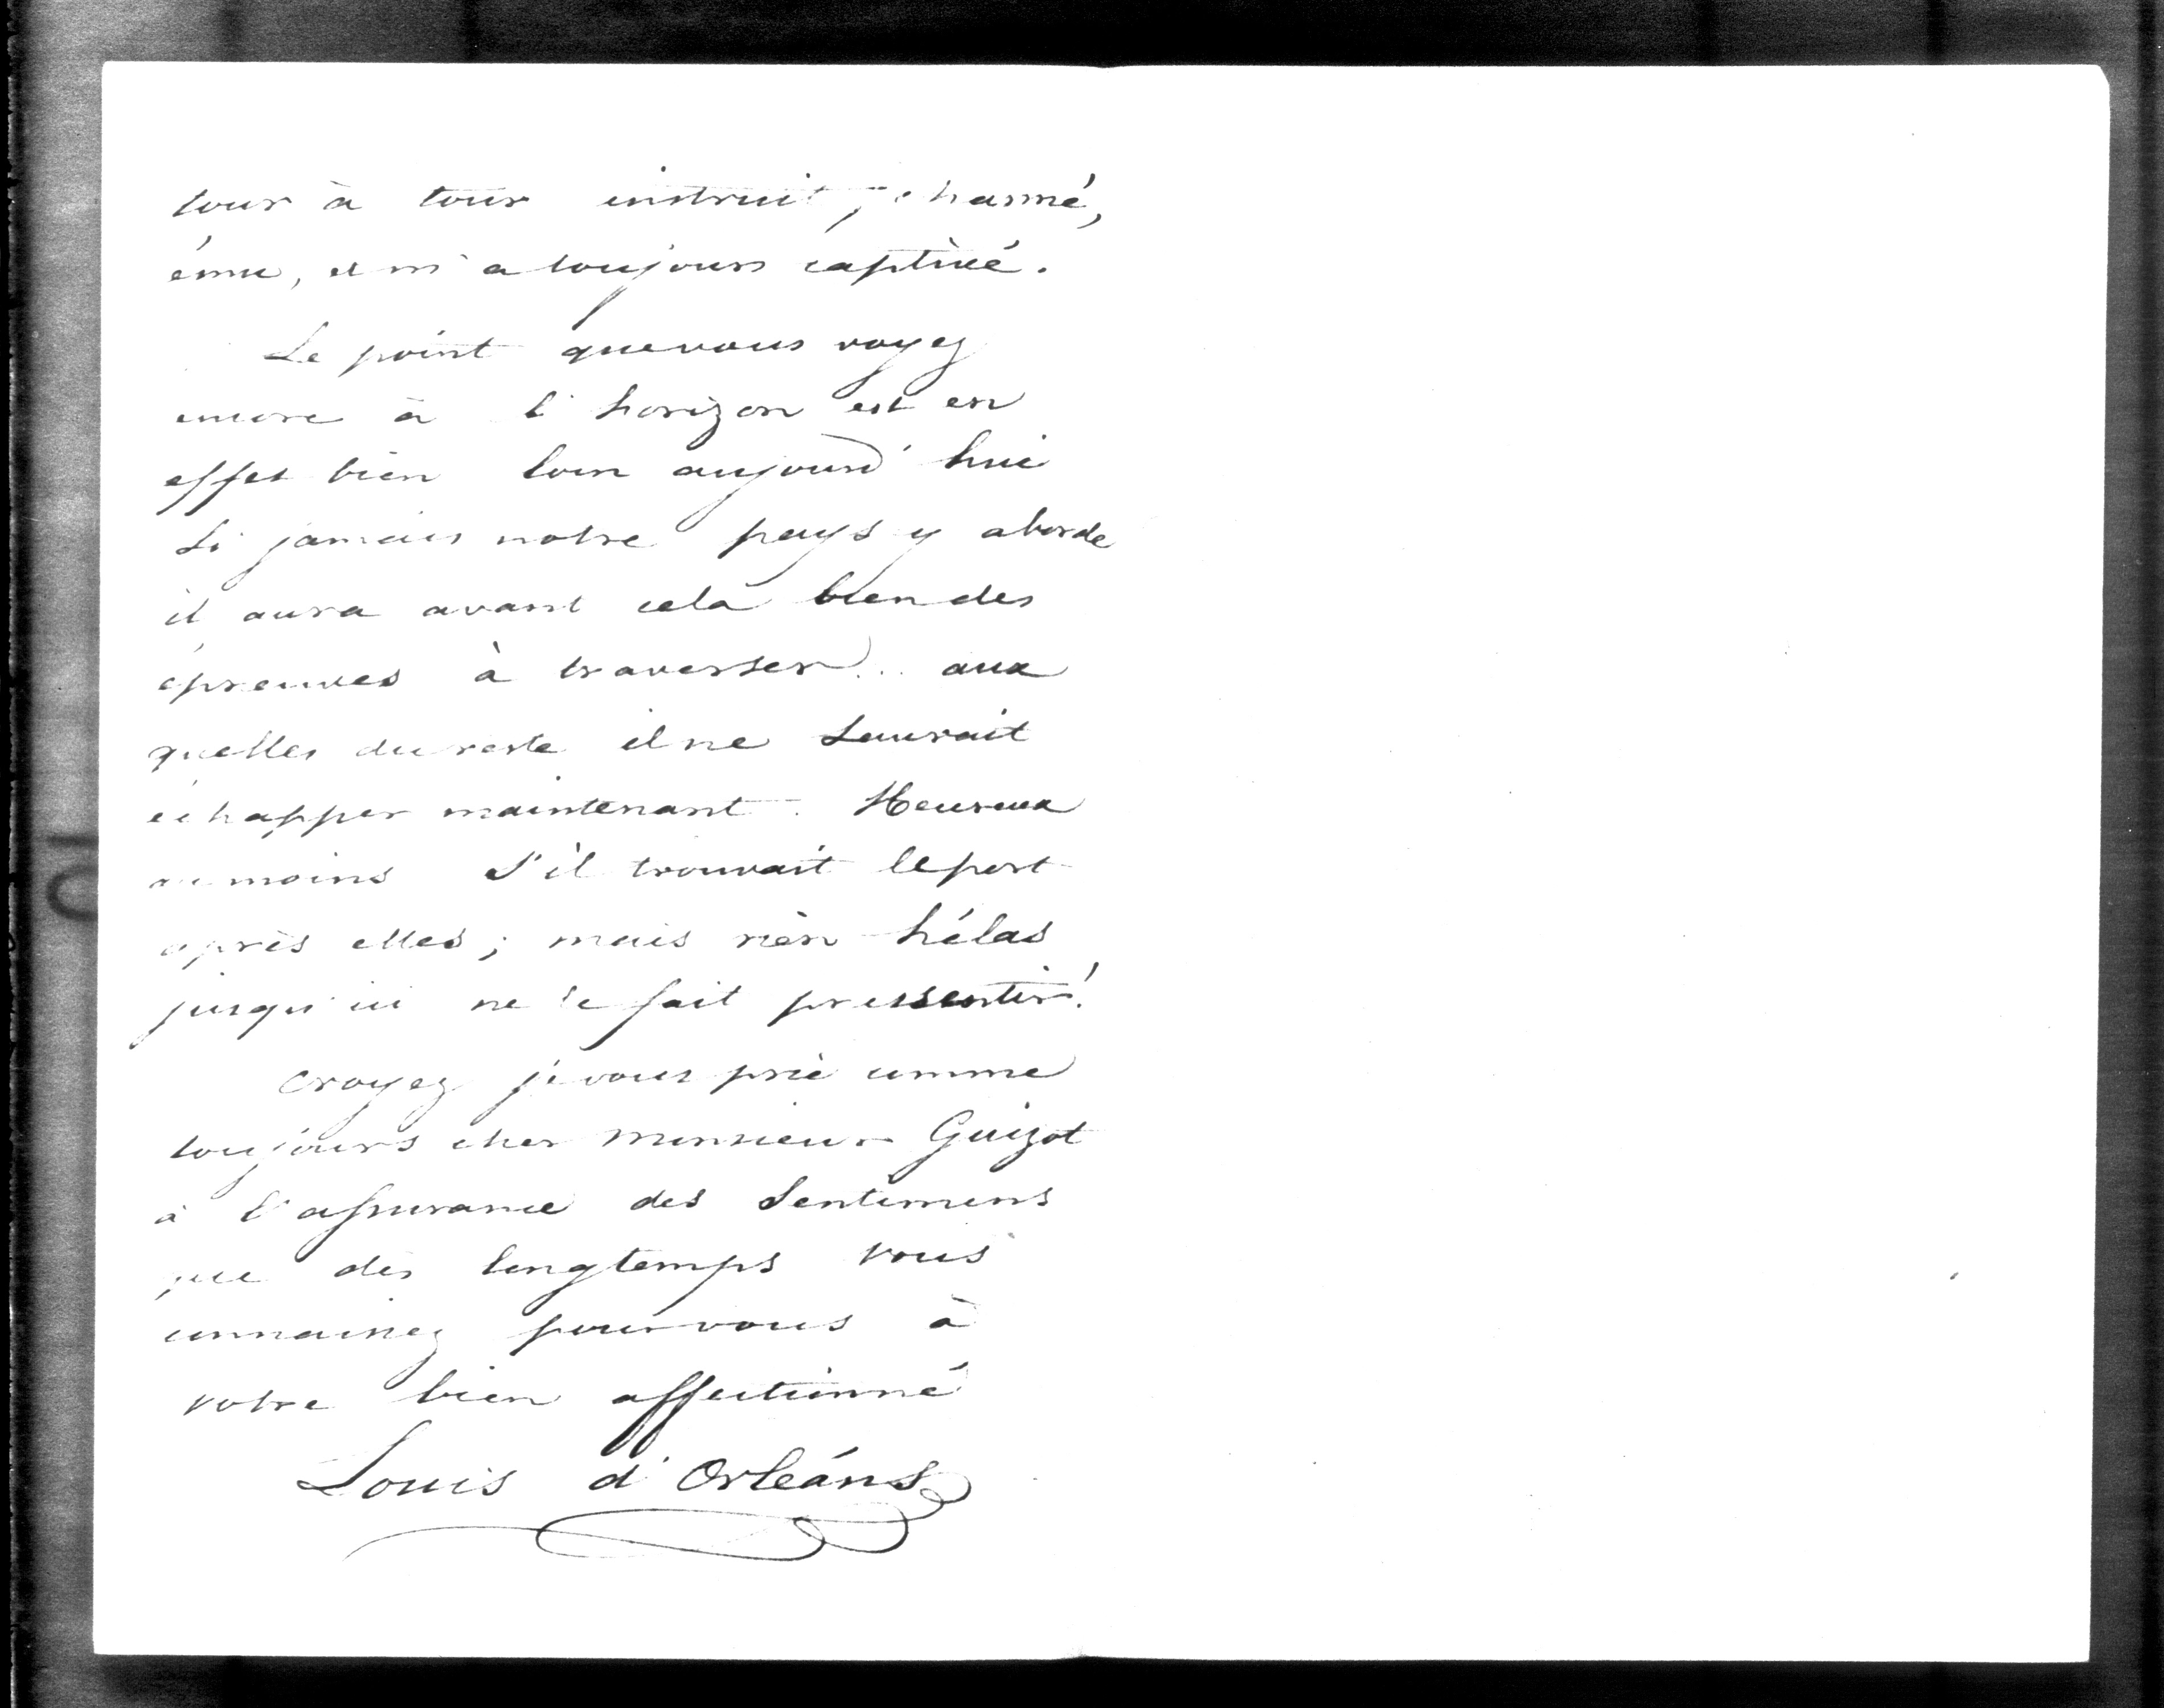 tour à tour instruit, charmé,
ému, et m'a toujours captivé.
Le point que vous voyez
encore à l'horizon est en
effet bien loin aujourd'hui
Si jamais notre pays y aborde
il aura avant cela bien des
épreuves à traverser... aux
quelles du reste il ne saurait
échapper maintenant. Heureux
au moins s'il trouvait le port
après elles; mais rien hélas
jusqu'ici ne le fait pressentir!
Croyez je vous prie comme
toujours cher monsieur Guizot
à l'assurance des sentimens
que dès longtemps vous
connaissez pour vous à
votre bien affectionné
Louis d'Orléans